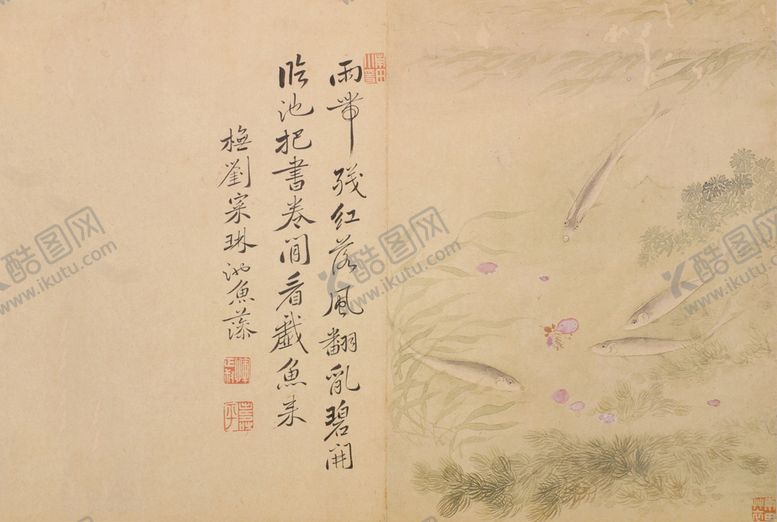 雨帶殘紅落風翻亂碧開
臨池把書卷閒看戲魚來
橅劉寀琳池魚藻
酷图网
www.ikutu.com
酷图网
www.ikutu.com
酷图网
www.ikutu.com